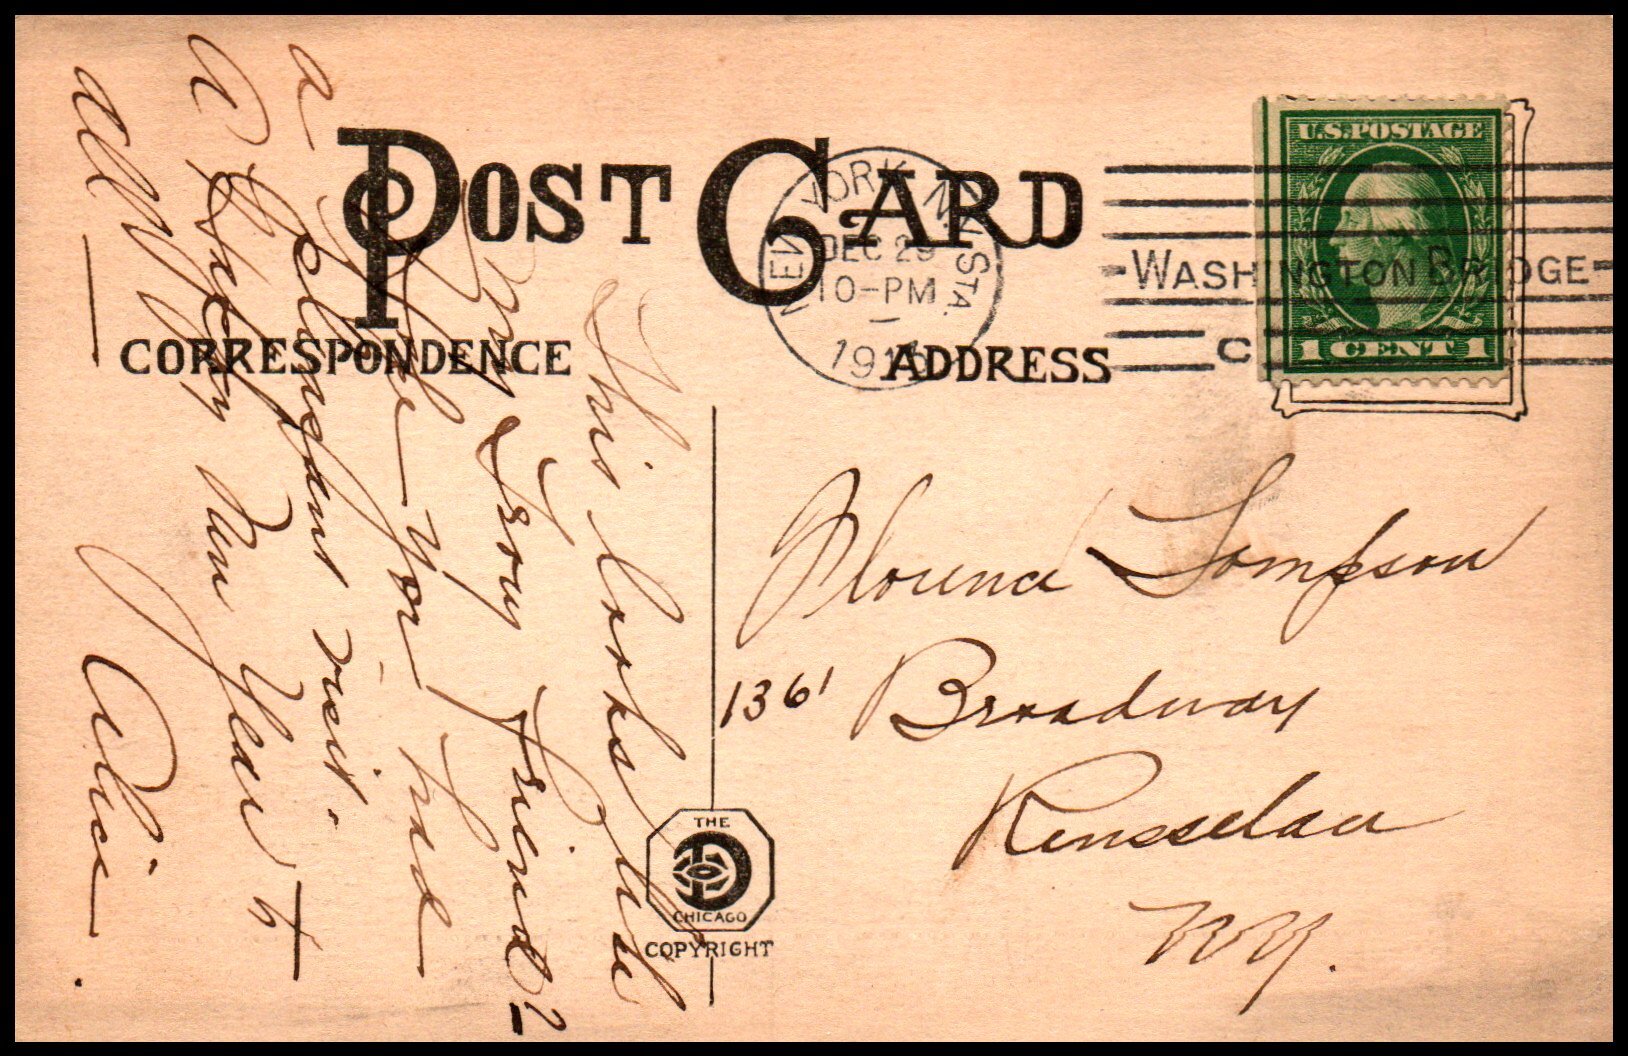 POST CARD
CORRESPONDENCE
ADDRESS
NEW YORK, N.Y. STA.
DEC 29
10-PM
WASHINGTON BRIDGE
C
U.S. POSTAGE
1 CENT 1
This looks like
my Troy Friend?
I hope you had
a pleasant visit.
A Happy New Year to
all
Alice.
Florence Tompson
1361 Broadway
Rensselaer
N.Y.
THE
CHICAGO
COPYRIGHT